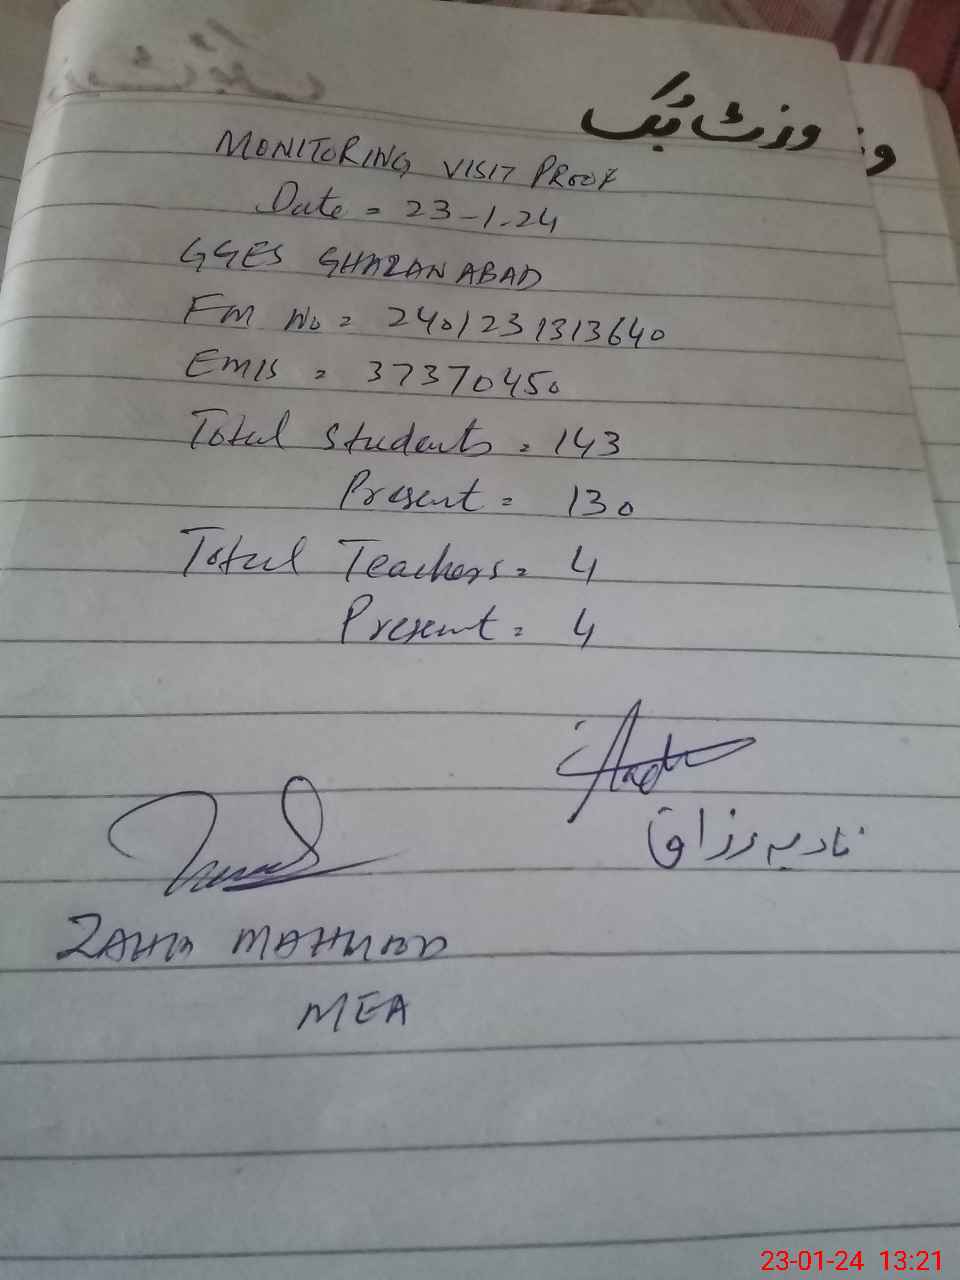 وزٹ بُک
MONITORING VISIT PROOF
Date = 23-1-24
GGES GHAZANABAD
FM No = 2401231313640
EMIS = 37370450
Total Students = 143
Present = 130
Total Teachers = 4
Present = 4
نادیہ رزاق
ZAHID MAHMOOD
MEA
23-01-24 13:21